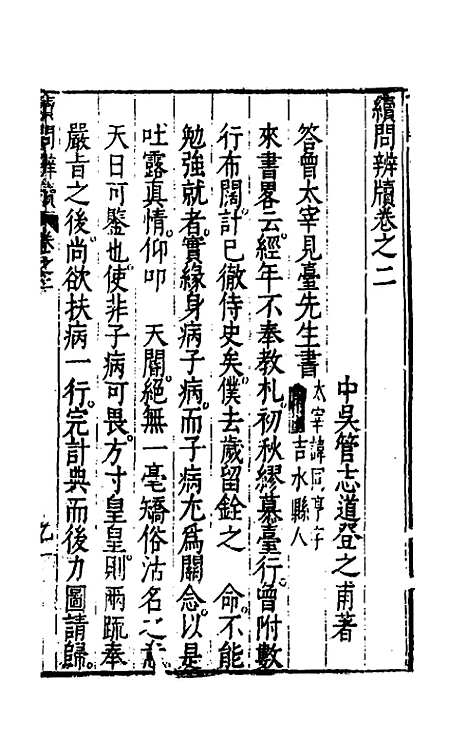 續問辨牘卷之二
中吳管志道登之甫著
答曾太宰見臺先生書
太宰諱同亨
吉水縣人
來書畧云經年不奉教札初秋繆慕臺行曾附數
行布闊計已徹侍史矣僕去歲留銓之 命不能
勉強就者實緣身病子病而子病尤為關念以是
吐露真情仰叩 天閽絕無一毫矯俗沽名之
天日可鑒也使非子病可畏方寸皇皇則兩疏奉
嚴旨之後尚欲扶病一行完計典而後力圖請歸
續問辨牘 卷之二